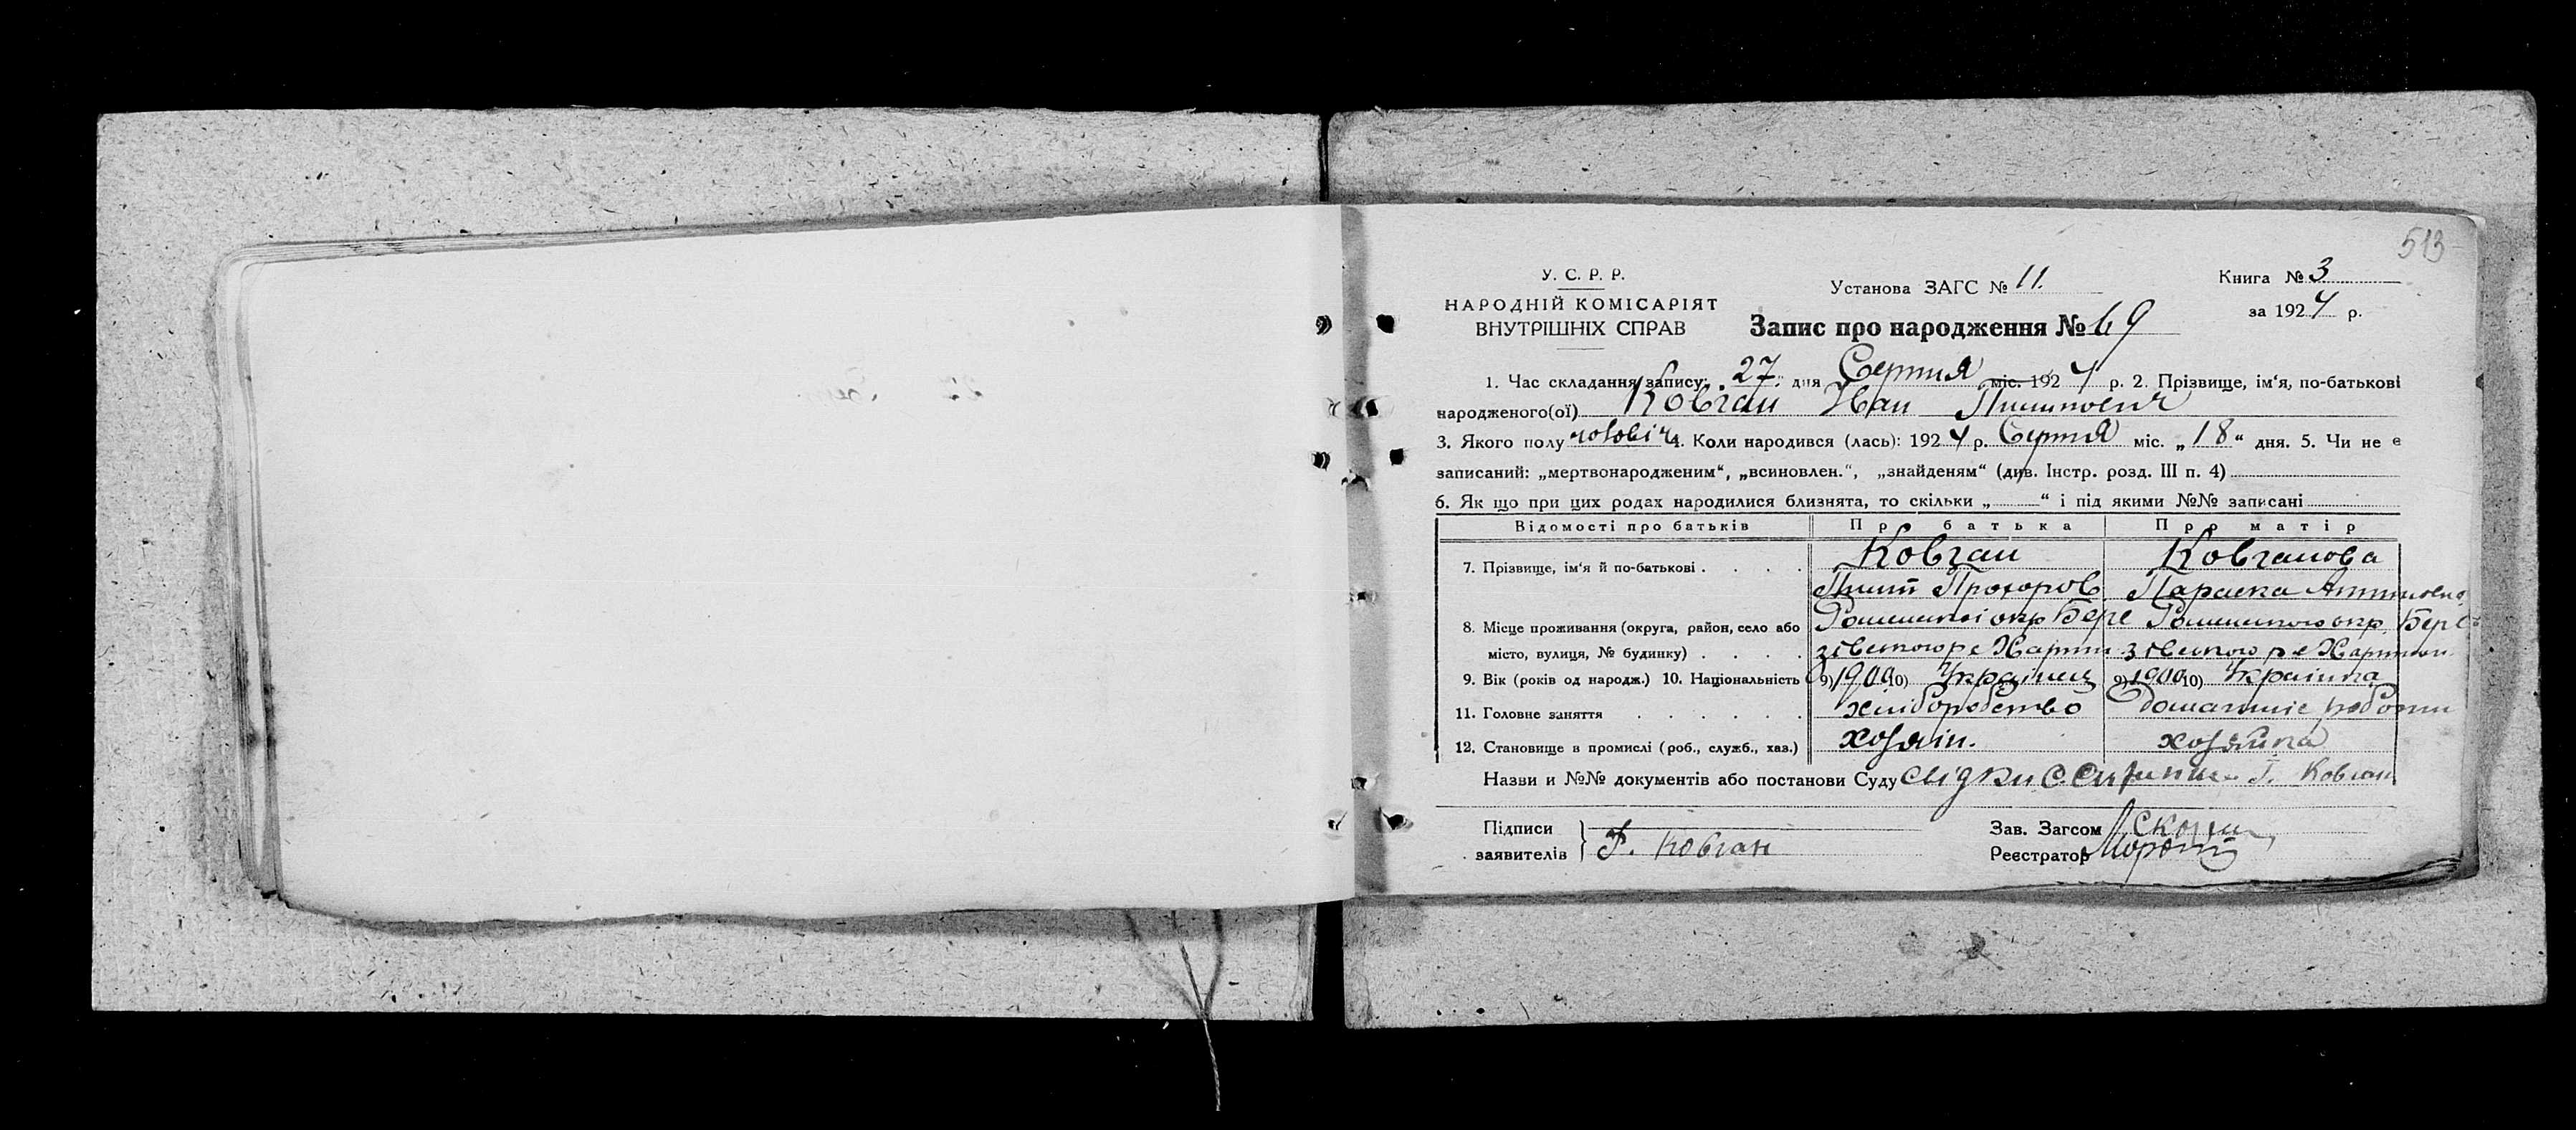 513
У. С. Р. Р.
НАРОДНІЙ КОМІСАРІЯТ
ВНУТРІШНІХ СПРАВ
Установа ЗАГС № 11.
Книга № 3
за 1924 р.
Запис про народження № 69
1. Час складання запису: 27 дня Серпня міс. 1924 р. 2. Прізвище, ім‘я, по-батькові
народженого(ої) Ковган Иван Пилипович
3. Якого полу чоловіч 4. Коли народився (лась): 1924 р. Серпня міс. „18“ дня. 5. Чи не є
записаний: „мертвонародженим“, „всиновлен.“, „знайденям“ (див. Інстр. розд. III п. 4)
6. Як що при цих родах народилися близнята, то скільки „ “ і під якими №№ записані
Відомості про батьків Про батька Про матір
7. Прізвище, ім‘я й по-батькові Ковган Ковганова
Пилип Прохоров Параска
8. Місце проживання (округа, район, село або Роменської окр Бере Роменського окр. Бере
місто, вулиця, № будинку) зівського р зівського р
9. Вік (років од народж.) 10. Національність 9) 1900 10) Українец 9) 1900 10) Українка
11. Головне заняття хліборобство домашніе роботи
12. Становище в промислі (роб., служб., хаз.) хозяін. хозяйка
Назви и №№ документів або постанови Суду свідки С. Ковган
Підписи
заявителів } Ковган
Зав. Загсом
Реєстратор